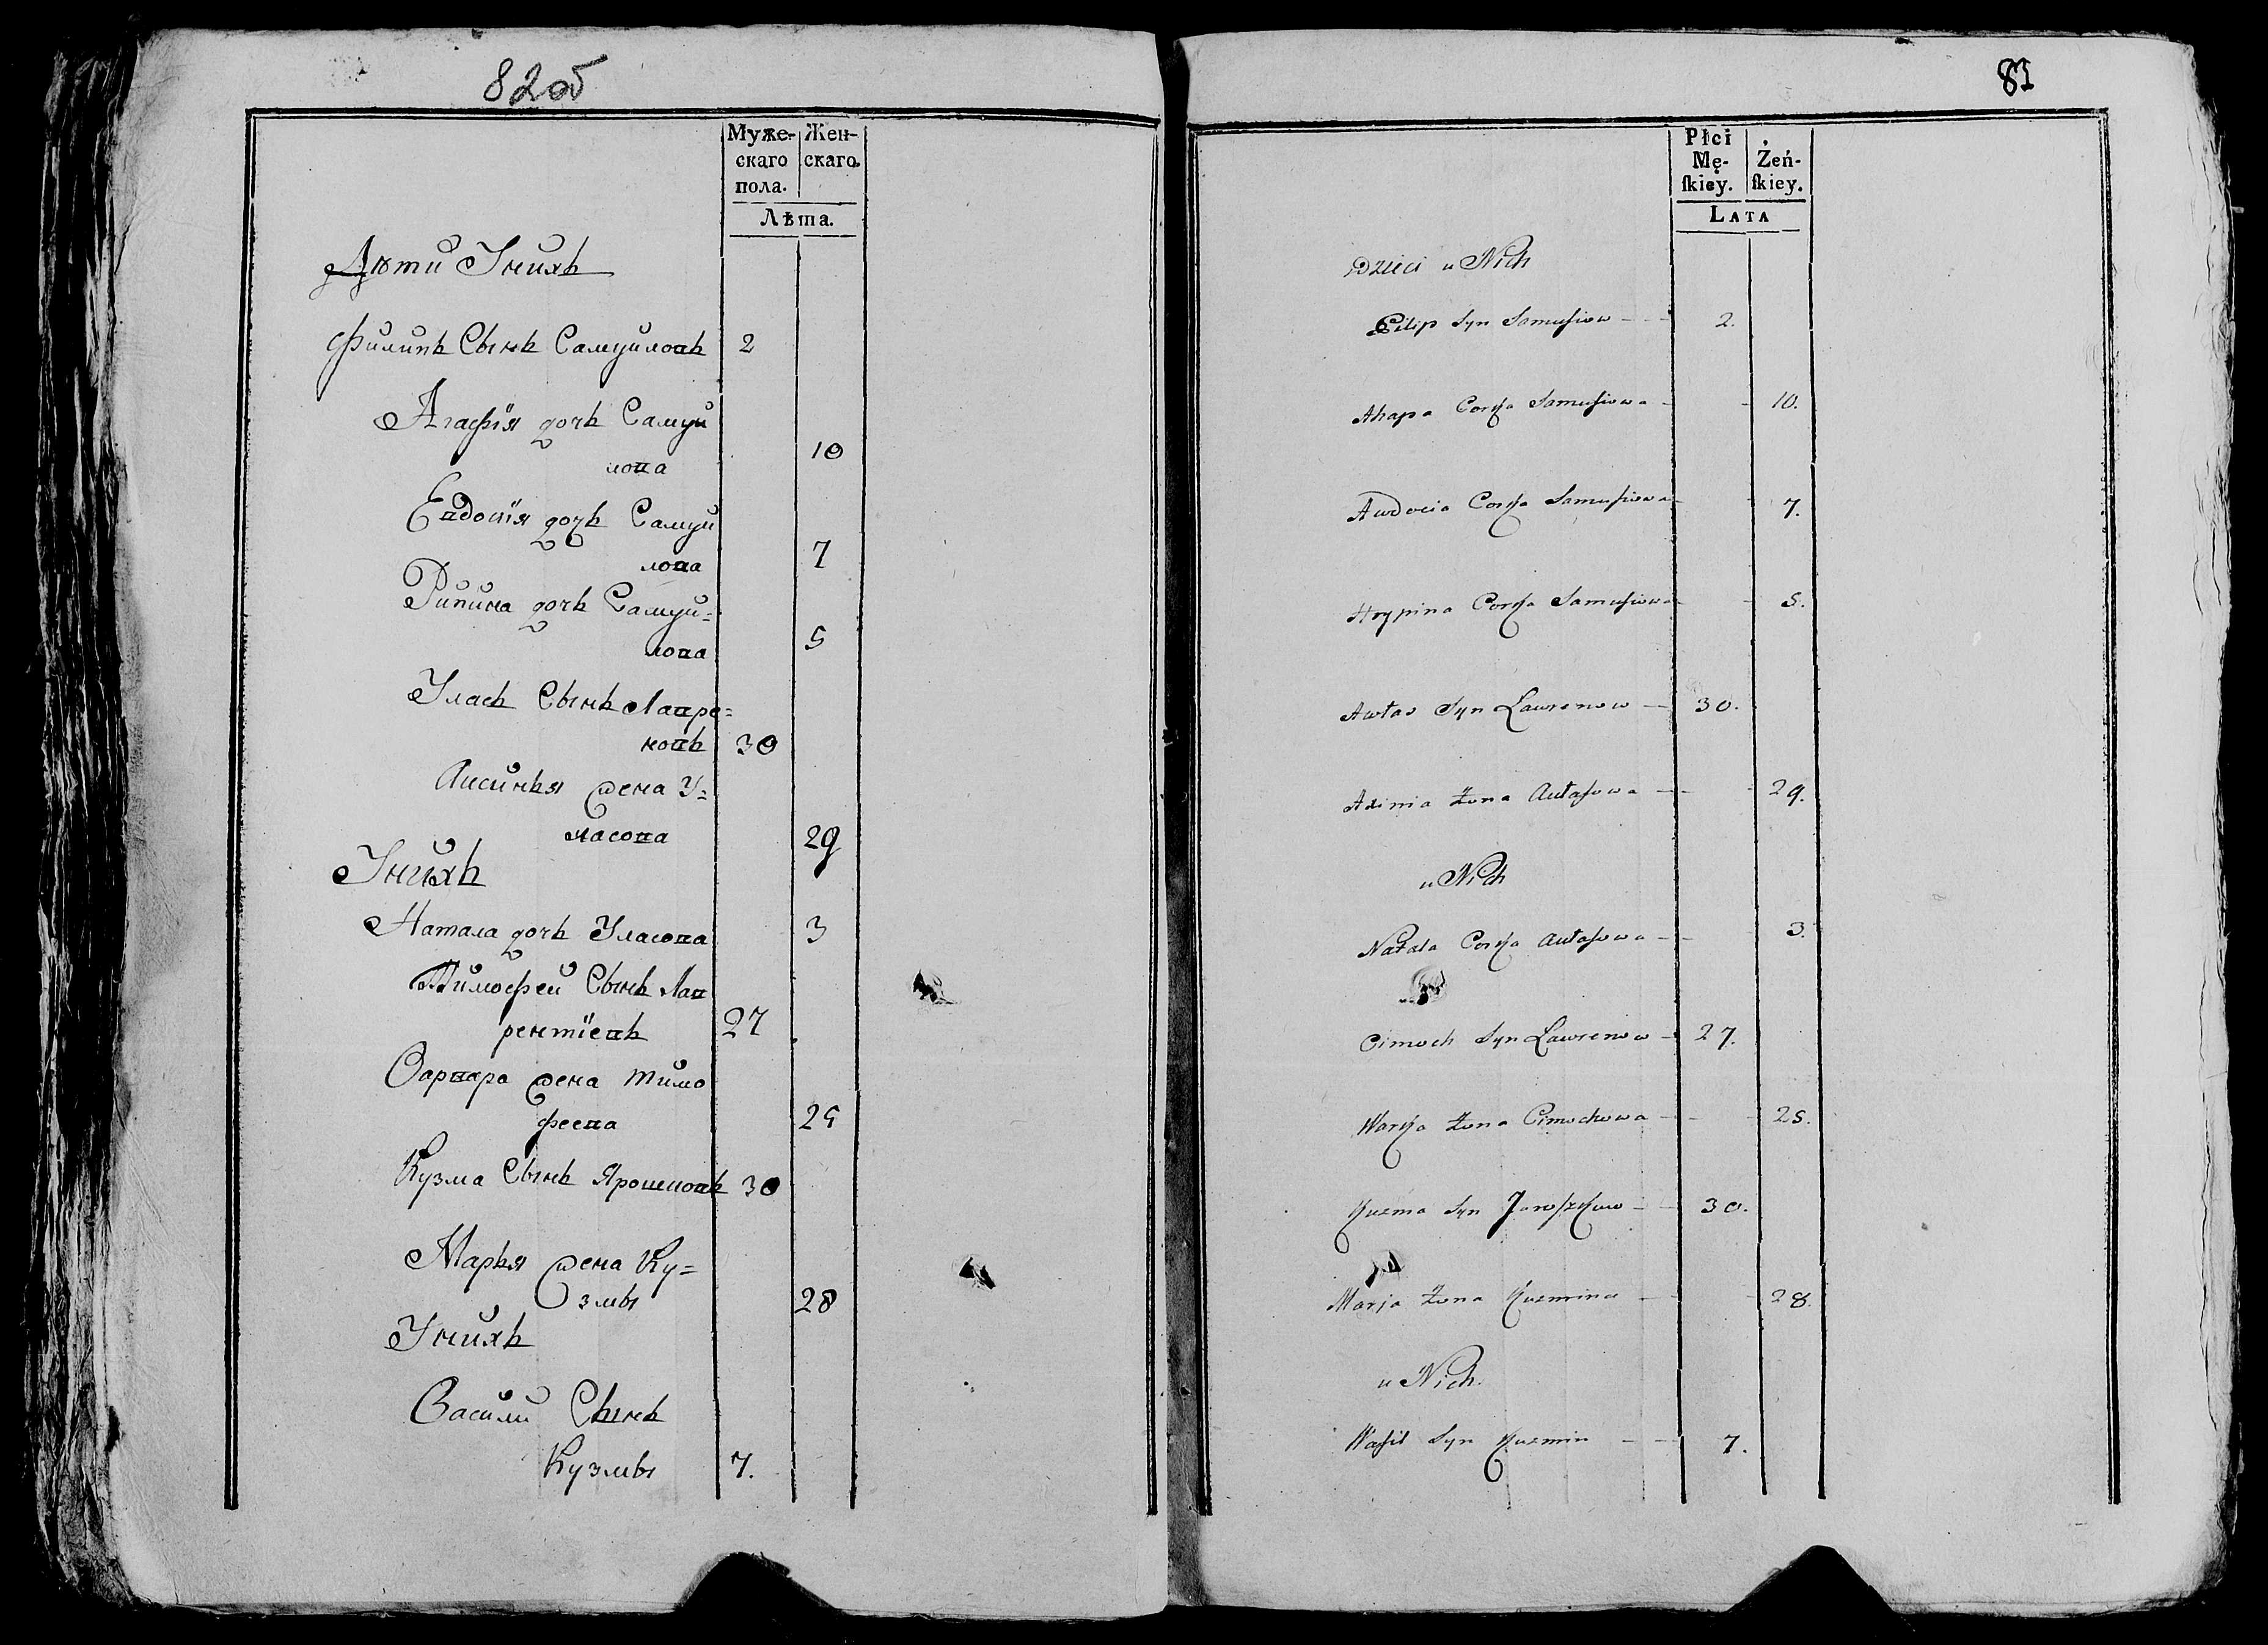 82об
Муже-
скаго
пола.
Жен-
скаго.
Лѣта.
Дѣти Унихъ
Филипъ Сынъ Самуиловъ 2
Агафїя дочь Самуй
лова 10
Евдокїя дочь Самуи
лова 7
Рипина дочь Самуи=
лова 5
Уласъ Сынъ Лавре=
новъ 30
Аксинья жена У=
ласова 29
Унихъ
Натала дочь Уласова 3
Тимофей Сынъ Лав
рентїевъ 27
Варвара жена тимо
феева 25
Кузма Сынъ Ярошковъ 30
Марья жена Ку=
змы 28
Унихъ
Васили Сынъ
Кузмы 7.
83
Płci
Mę-
ſkiey.
Żeń-
ſkiey.
LATA
Dzieci u Nich
Filip Syn Samusiow - - 2.
Ahapa Corka Samusiowa - - 10.
Awdocia Corka Samusiowa - - 7.
Hrypina Corka Samusiowa - - 5.
Awłas Syn Lawrenow - 30.
Axinia Żona Aułasowa - - 29.
u Nich
Natala Corka Aułasowa - - 3.
Cimoch Syn Lawrenow - 27.
Warka Żona Cimochowa - - 25.
Kuzma Syn Jaroszkow - - 30.
Marja Żona Kuzmina - - 28.
u Nich.
Wasil Syn Kuzmin - - 7.